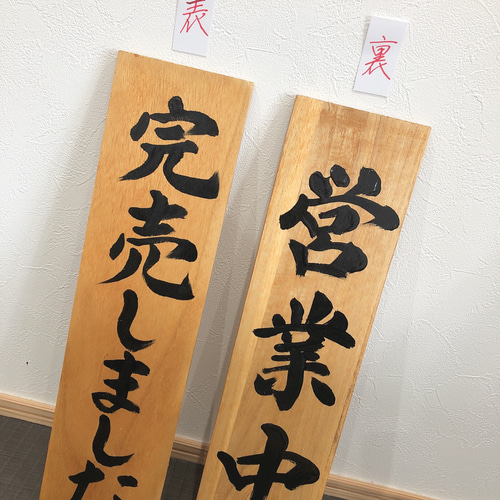 表
完売しました
裏
営業中